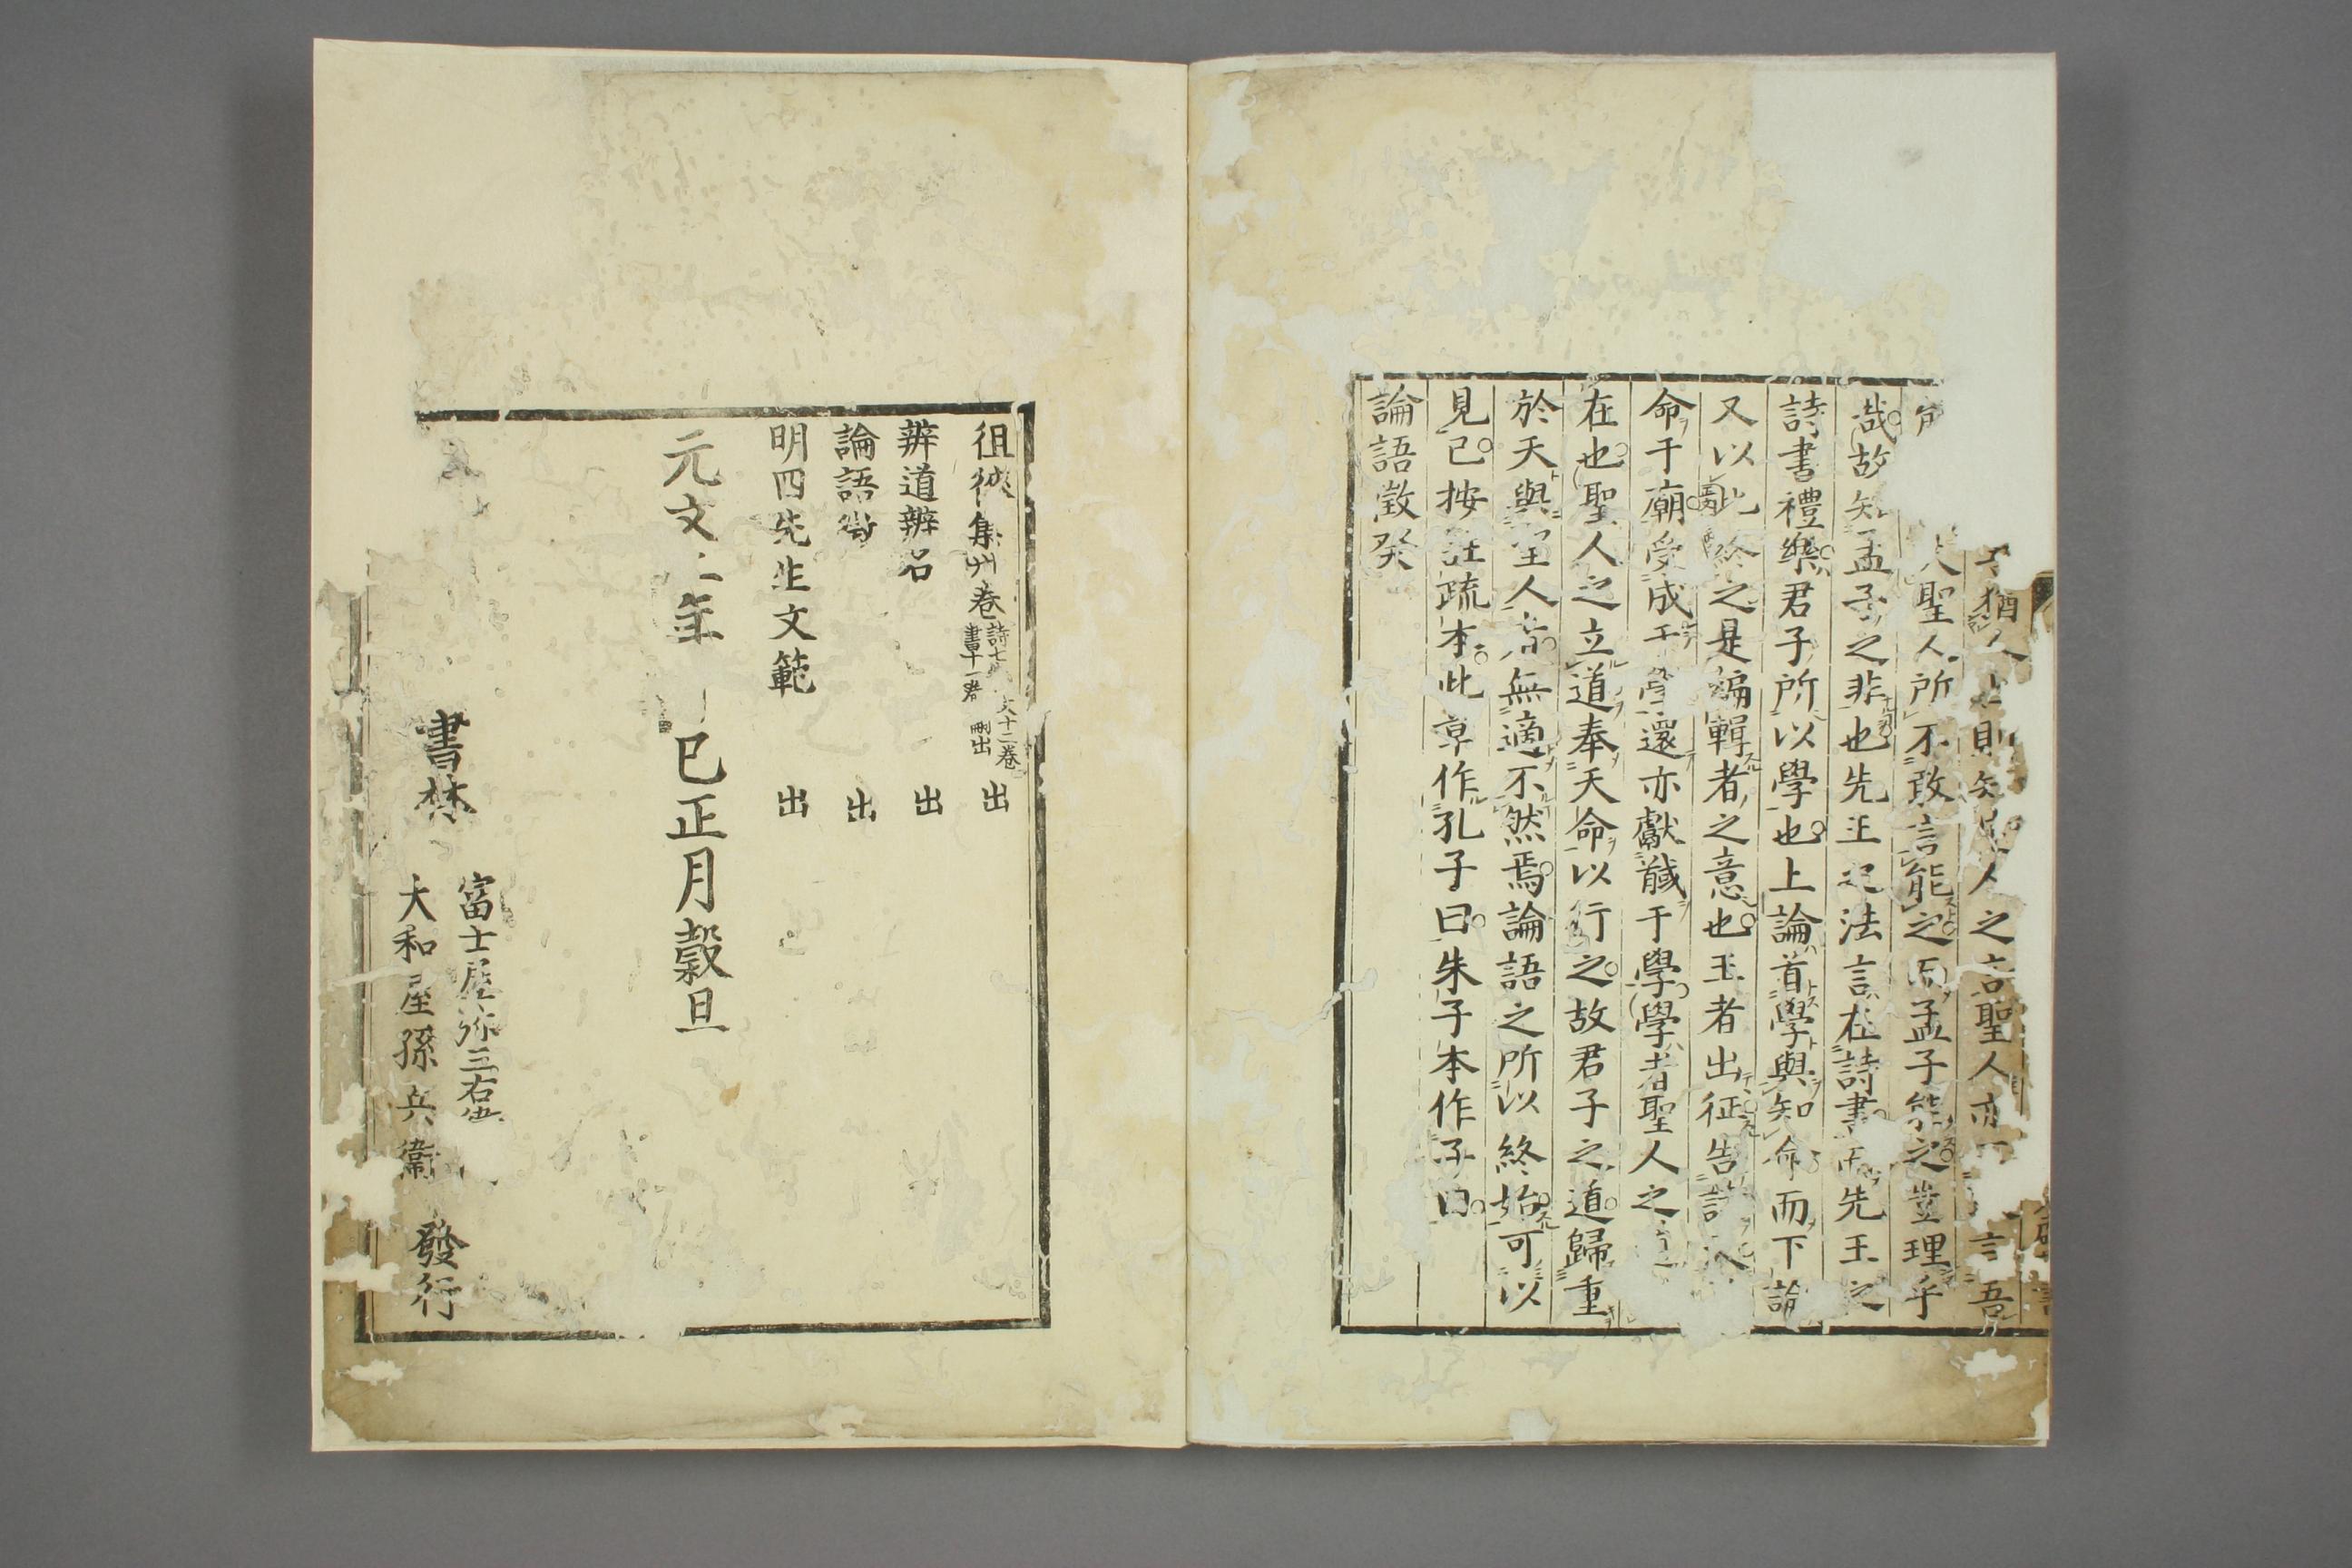 猶人也則知聖人之言聖人亦言吾
大聖人所不敢言能之而孟子能之豈理乎
哉故知孟子之非也先王之法言在詩書而先王之
詩書禮樂君子所以學也上論首學與知命而下論
又以此終之是編輯者之意也王者出征告
命于廟受成于學還亦獻馘于學學者聖人之
在也聖人之立道奉天命以行之故君子之道歸重
於天與聖人言無適不然焉論語之所以終始可以
見已按註疏本此章作孔子曰朱子本作子曰
論語徵癸
徂徠集卅卷 詩七 文十二卷 書十一卷 刪出 出
辨道辨名 出
論語徵 出
明四先生文範 出
元文二年 巳正月穀旦
書林
富士屋弥三右
大和屋孫兵衛
發行